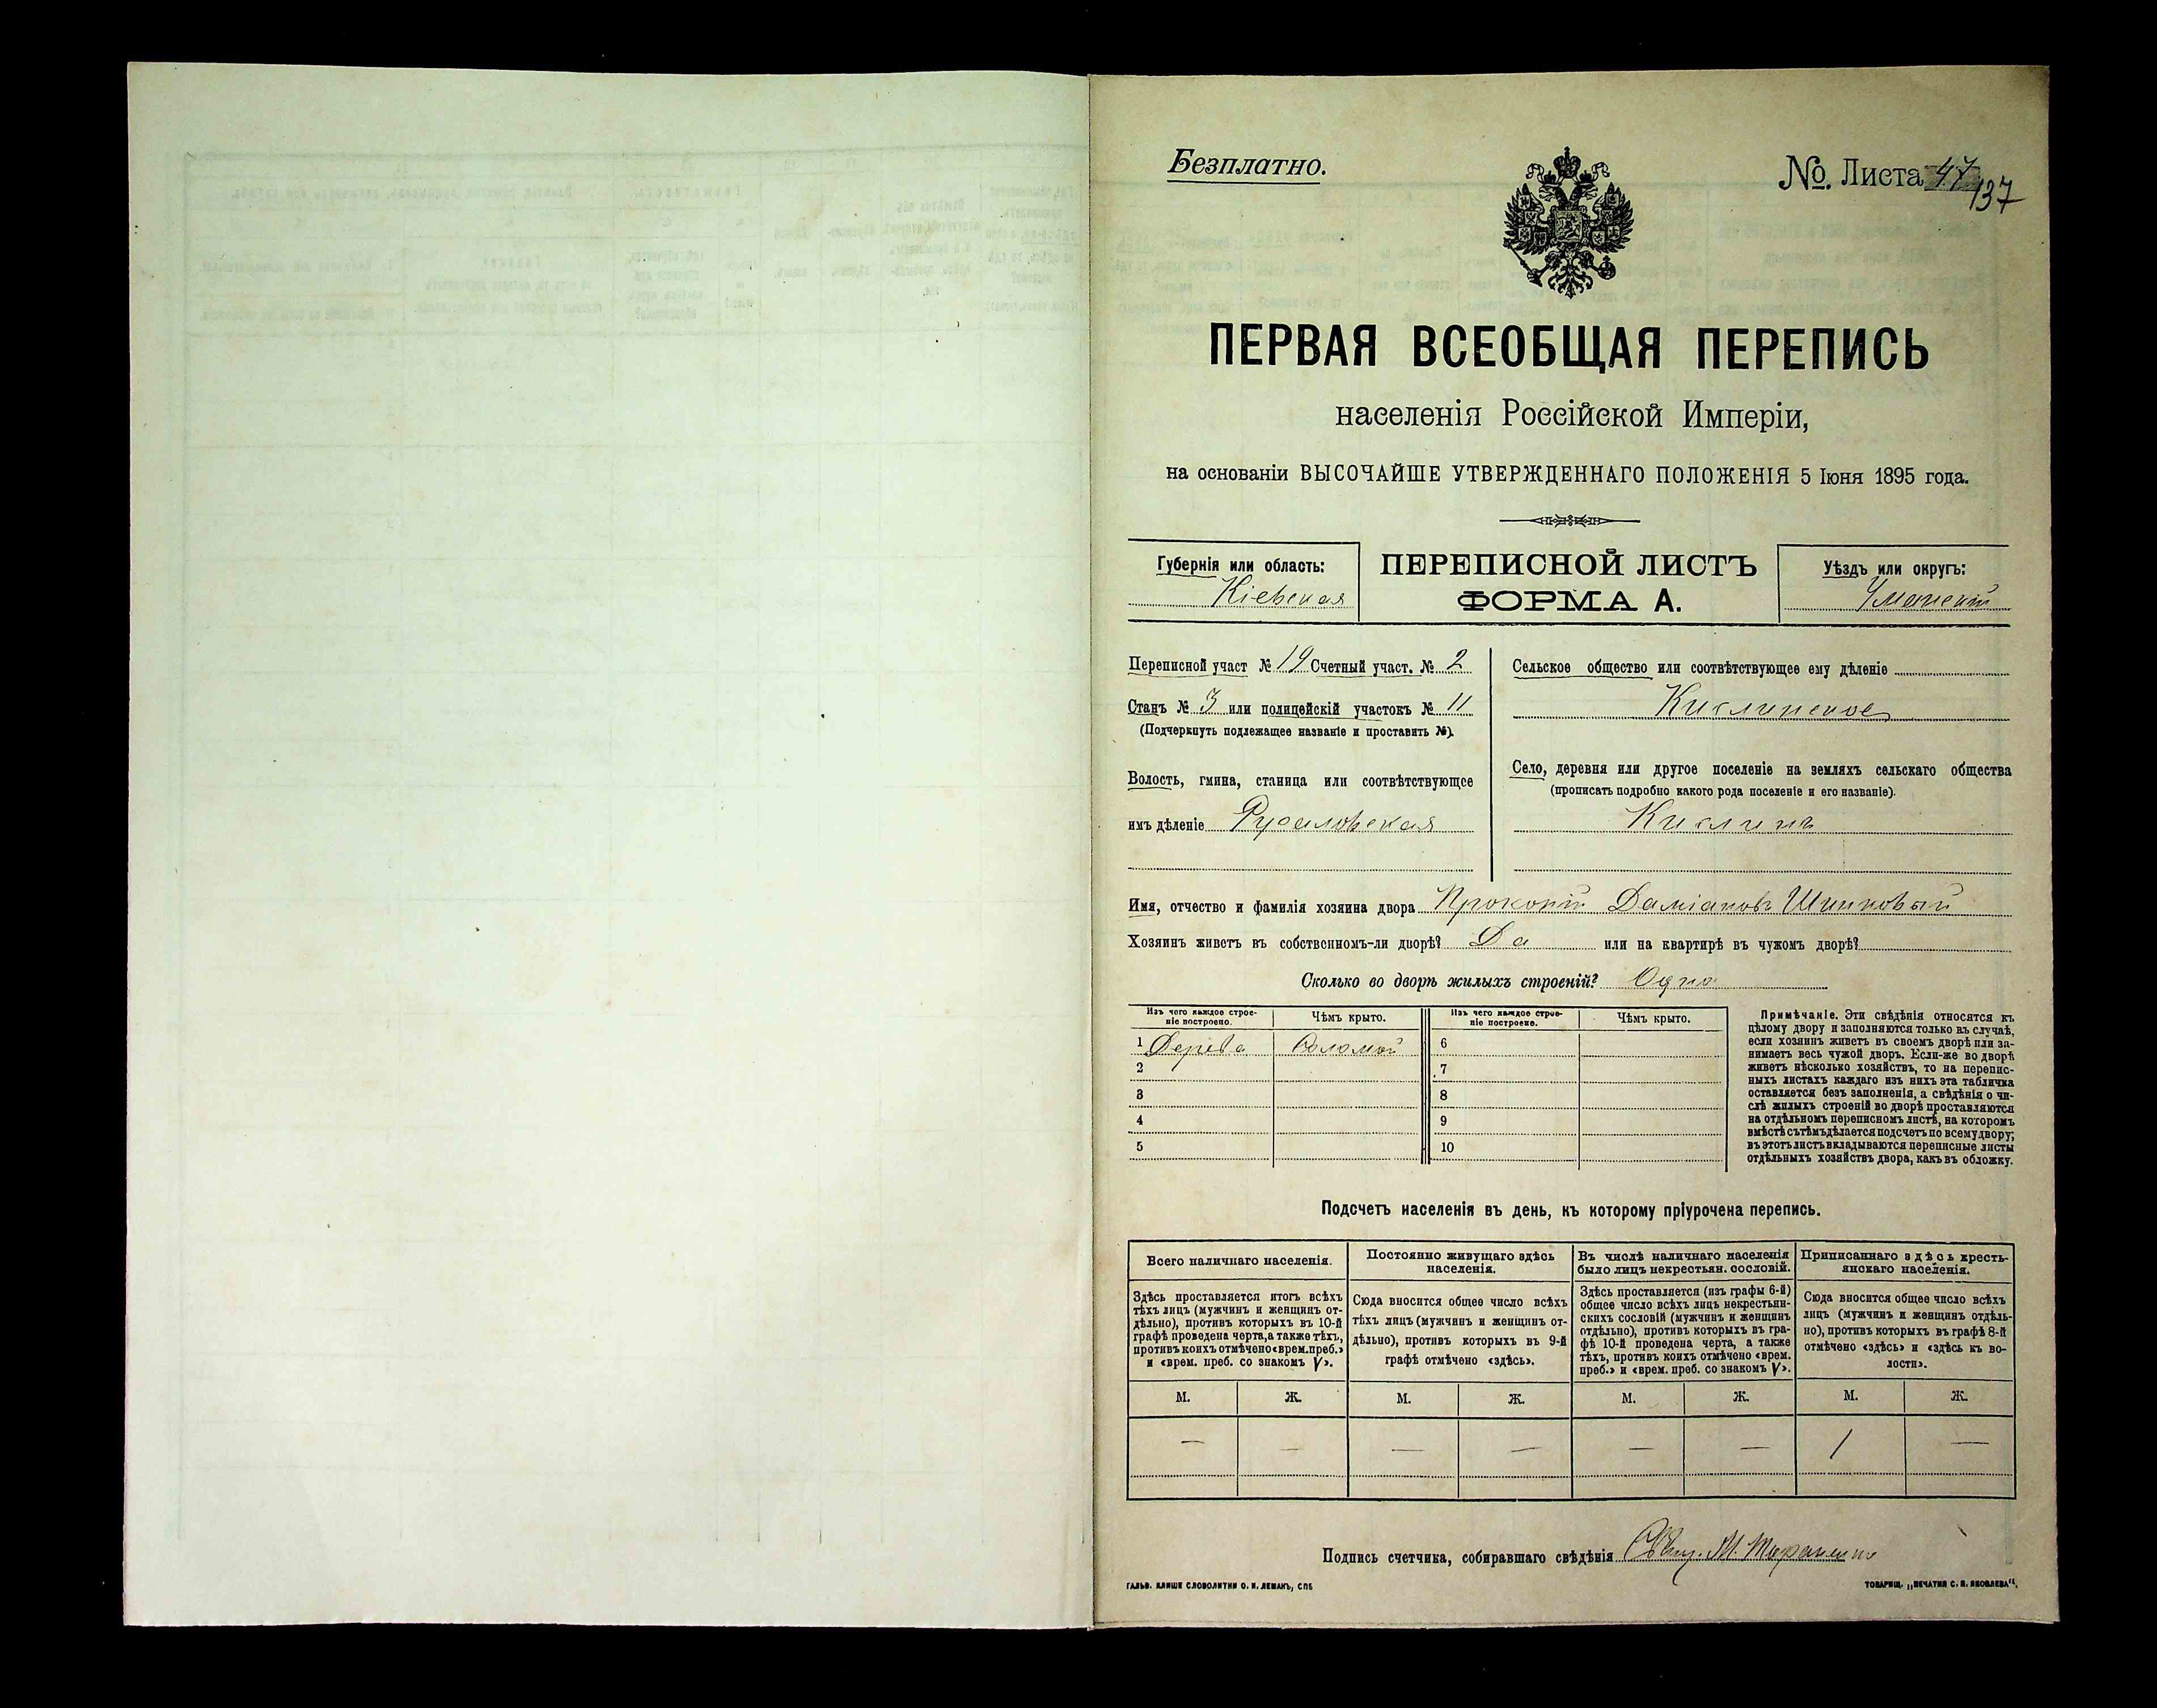 Безплатно.
№. Листа 47 137
ПЕРВАЯ ВСЕОБЩАЯ ПЕРЕПИСЬ
населенія Россійской Имперіи,
на основаніи ВЫСОЧАЙШЕ УТВЕРЖДЕННАГО ПОЛОЖЕНІЯ 5 Іюня 1895 года.
Губернія или область:
Кіевская
ПЕРЕПИСНОЙ ЛИСТЪ
ФОРМА А.
Уѣздъ или округъ:
Уманскій
Переписной участ № 19 Счетный участ. № 2
Станъ № 3 или полицейскій участокъ № 11
(Подчеркнуть подлежащее названіе и проставить №).
Волость, гмина, станица или соотвѣтствующее
имъ дѣленіе Русаловская
Сельское общество или соотвѣтствующее ему дѣленіе
Кислинское
Село, деревня или другое поселеніе на земляхъ сельскаго общества
(прописать подробно какого рода поселеніе и его названіе).
Кислинъ
Имя, отчество и фамилія хозяина двора Прокопій Даміановъ
Хозяинъ живетъ въ собственномъ-ли дворѣ? Да или на квартирѣ въ чужомъ дворѣ?
Сколько во дворѣ жилыхъ строеній? Одно
Изъ чего каждое строе-
ніе построено.
Чѣмъ крыто.
Изъ чего каждое строе-
ніе построено.
Чѣмъ крыто.
1 Дерева Соломой 6
2 7
3 8
4 9
5 10
Примѣчаніе. Эти свѣдѣнія относятся къ
цѣлому двору и заполняются только въ случаѣ,
если хозяинъ живетъ въ своемъ дворѣ или за-
нимаетъ весь чужой дворъ. Если-же во дворѣ
живетъ нѣсколько хозяйствъ, то на перепис-
ныхъ листахъ каждаго изъ нихъ эта табличка
оставляется безъ заполненія, а свѣдѣнія о чи-
слѣ жилыхъ строеній во дворѣ проставляются
на отдѣльномъ переписномъ листѣ, на которомъ
вмѣстѣ съ тѣмъ дѣлается подсчетъ по всему двору;
въ этотъ листъ вкладываются переписные листы
отдѣльныхъ хозяйствъ двора, какъ въ обложку.
Подсчетъ населенія въ день, къ которому пріурочена перепись.
Всего наличнаго населенія.
Постоянно живущаго здѣсь
населенія.
Въ числѣ наличнаго населенія
было лицъ некрестьян. сословій.
Приписаннаго здѣсь кресть-
янскаго населенія.
Здѣсь проставляется итогъ всѣхъ
тѣхъ лицъ (мужчинъ и женщинъ от-
дѣльно), противъ которыхъ въ 10-й
графѣ проведена черта, а также тѣхъ,
противъ коихъ отмѣчено «врем. преб.»
и «врем. преб. со знакомъ V».
Сюда вносится общее число всѣхъ
тѣхъ лицъ (мужчинъ и женщинъ от-
дѣльно), противъ которыхъ въ 9-й
графѣ отмѣчено «здѣсь».
Здѣсь проставляется (изъ графы 6-й)
общее число всѣхъ лицъ некрестьян-
скихъ сословій (мужчинъ и женщинъ
отдѣльно), противъ которыхъ въ гра-
фѣ 10-й проведена черта, а также
тѣхъ, противъ коихъ отмѣчено «врем.
преб.» и «врем. преб. со знакомъ V».
Сюда вносится общее число всѣхъ
лицъ (мужчинъ и женщинъ отдѣль-
но), противъ которыхъ въ графѣ 8-й
отмѣчено «здѣсь» и «здѣсь къ во-
лости».
М. Ж. М. Ж. М. Ж. М. Ж.
— — — — — — 1 —
Подпись счетчика, собиравшаго свѣдѣнія
ГАЛЬВ. КЛИШЕ СЛОВОЛИТНИ О. И. ЛЕМАНЪ, СПБ
ТОВАРИЩ. „ПЕЧАТНЯ С. П. ЯКОВЛЕВА“.